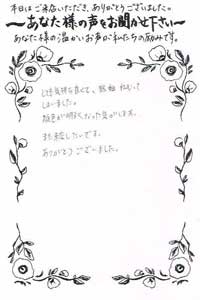 本日はご来店いただき、ありがとうございました。
～あなた様の声をお聞かせ下さい～
あなた様の温かいお声が私たちの励みです。
とても気持ち良くて、結構ねむって
しまいました。
顔色が明るくなった気がします。
また来たいです。
ありがとうございました。